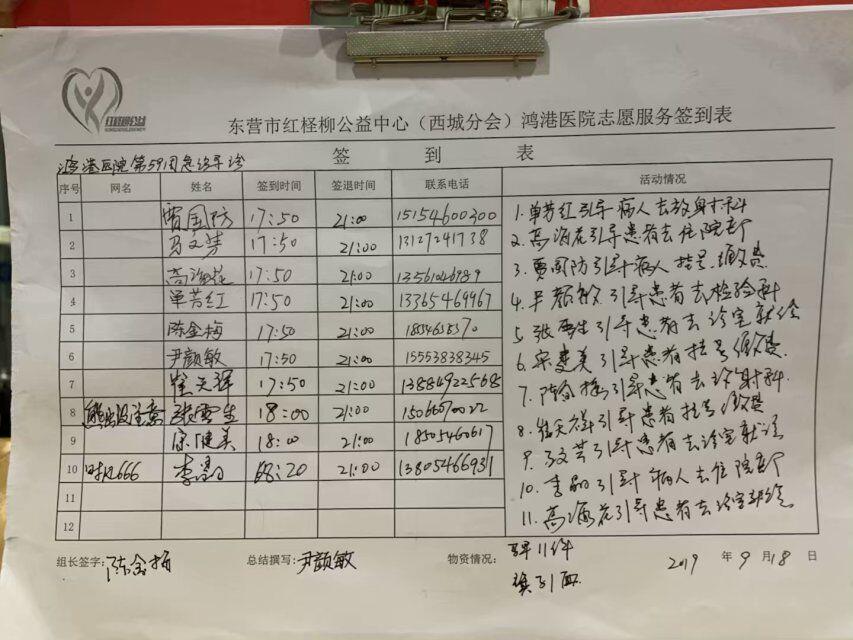 红柽柳公益
东营市红柽柳公益中心（西城分会）鸿港医院志愿服务签到表
签 到 表
鸿港医院第59周急诊导诊
序号 网名 姓名 签到时间 签退时间 联系电话 活动情况
1 贾国防 17:50 21:00 15154600300
2 马文芳 17:50 21:00 13127241738
3 高海花 17:50 21:00 13561046989
4 单芳红 17:50 21:00 13365469967
5 陈金梅 17:50 21:00
6 尹颜敏 17:50 21:00 15553838345
7 崔天祥 17:50 21:00 13884922568
8 张雪生 18:00 21:00 15066070022
9 宋健美 18:00 21:00 18505460617
10 时风666 李 18:20 21:00 13805466931
11
12
1.单芳红引导病人去放射科
2.高海花引导患者去住院部
3.贾国防引导病人挂号缴费
4.尹颜敏引导患者去检验科
5.张雪生引导患者去诊室就诊
6.宋建美引导患者挂号缴费.
7.陈金梅引导患者去 射科.
8.崔天祥引导患者挂号缴费
9.文芳引导患者去诊室就诊
10.李 引导病人去住院部
11.高海花引导患者去诊室就诊
组长签字: 陈金梅 总结撰写: 尹颜敏 物资情况: 11件 2019 年 9 月 18 日
旗引1面